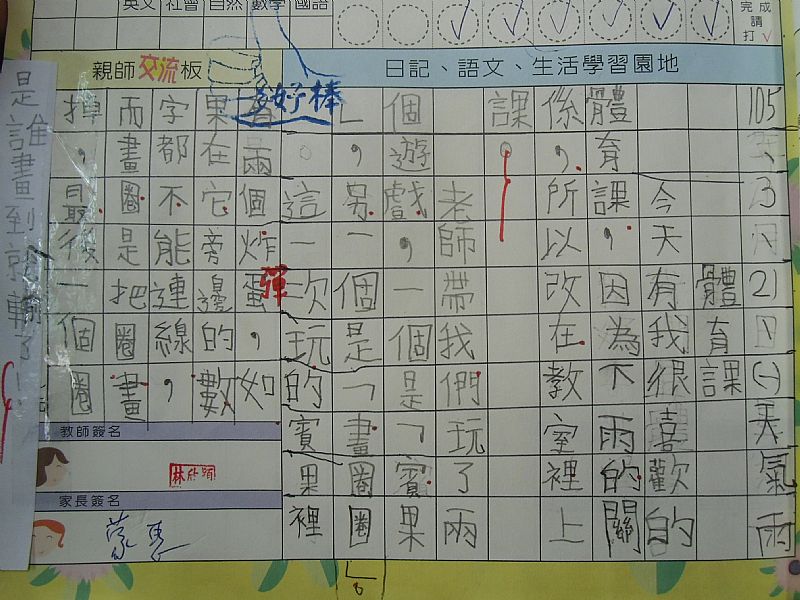 英文 社會 自然 數學 國語
完成請打✓
親師交流板
日記、語文、生活學習園地
好棒
105、3月21日(一)天氣雨
體育課
今天有我很喜歡的
體育課，因為下雨的關
係，所以改在教室裡上
課。
老師帶我們玩了兩
個遊戲，一個是「賓果
」，另一個是「畫圈圈」
。這一次玩的賓果裡
有兩個炸蛋，如
彈
果在它旁邊的數
字都不能連線，
而畫圈圈是把圈畫
掉，最後一個圈
是誰畫到就輸了！
教師簽名
家長簽名